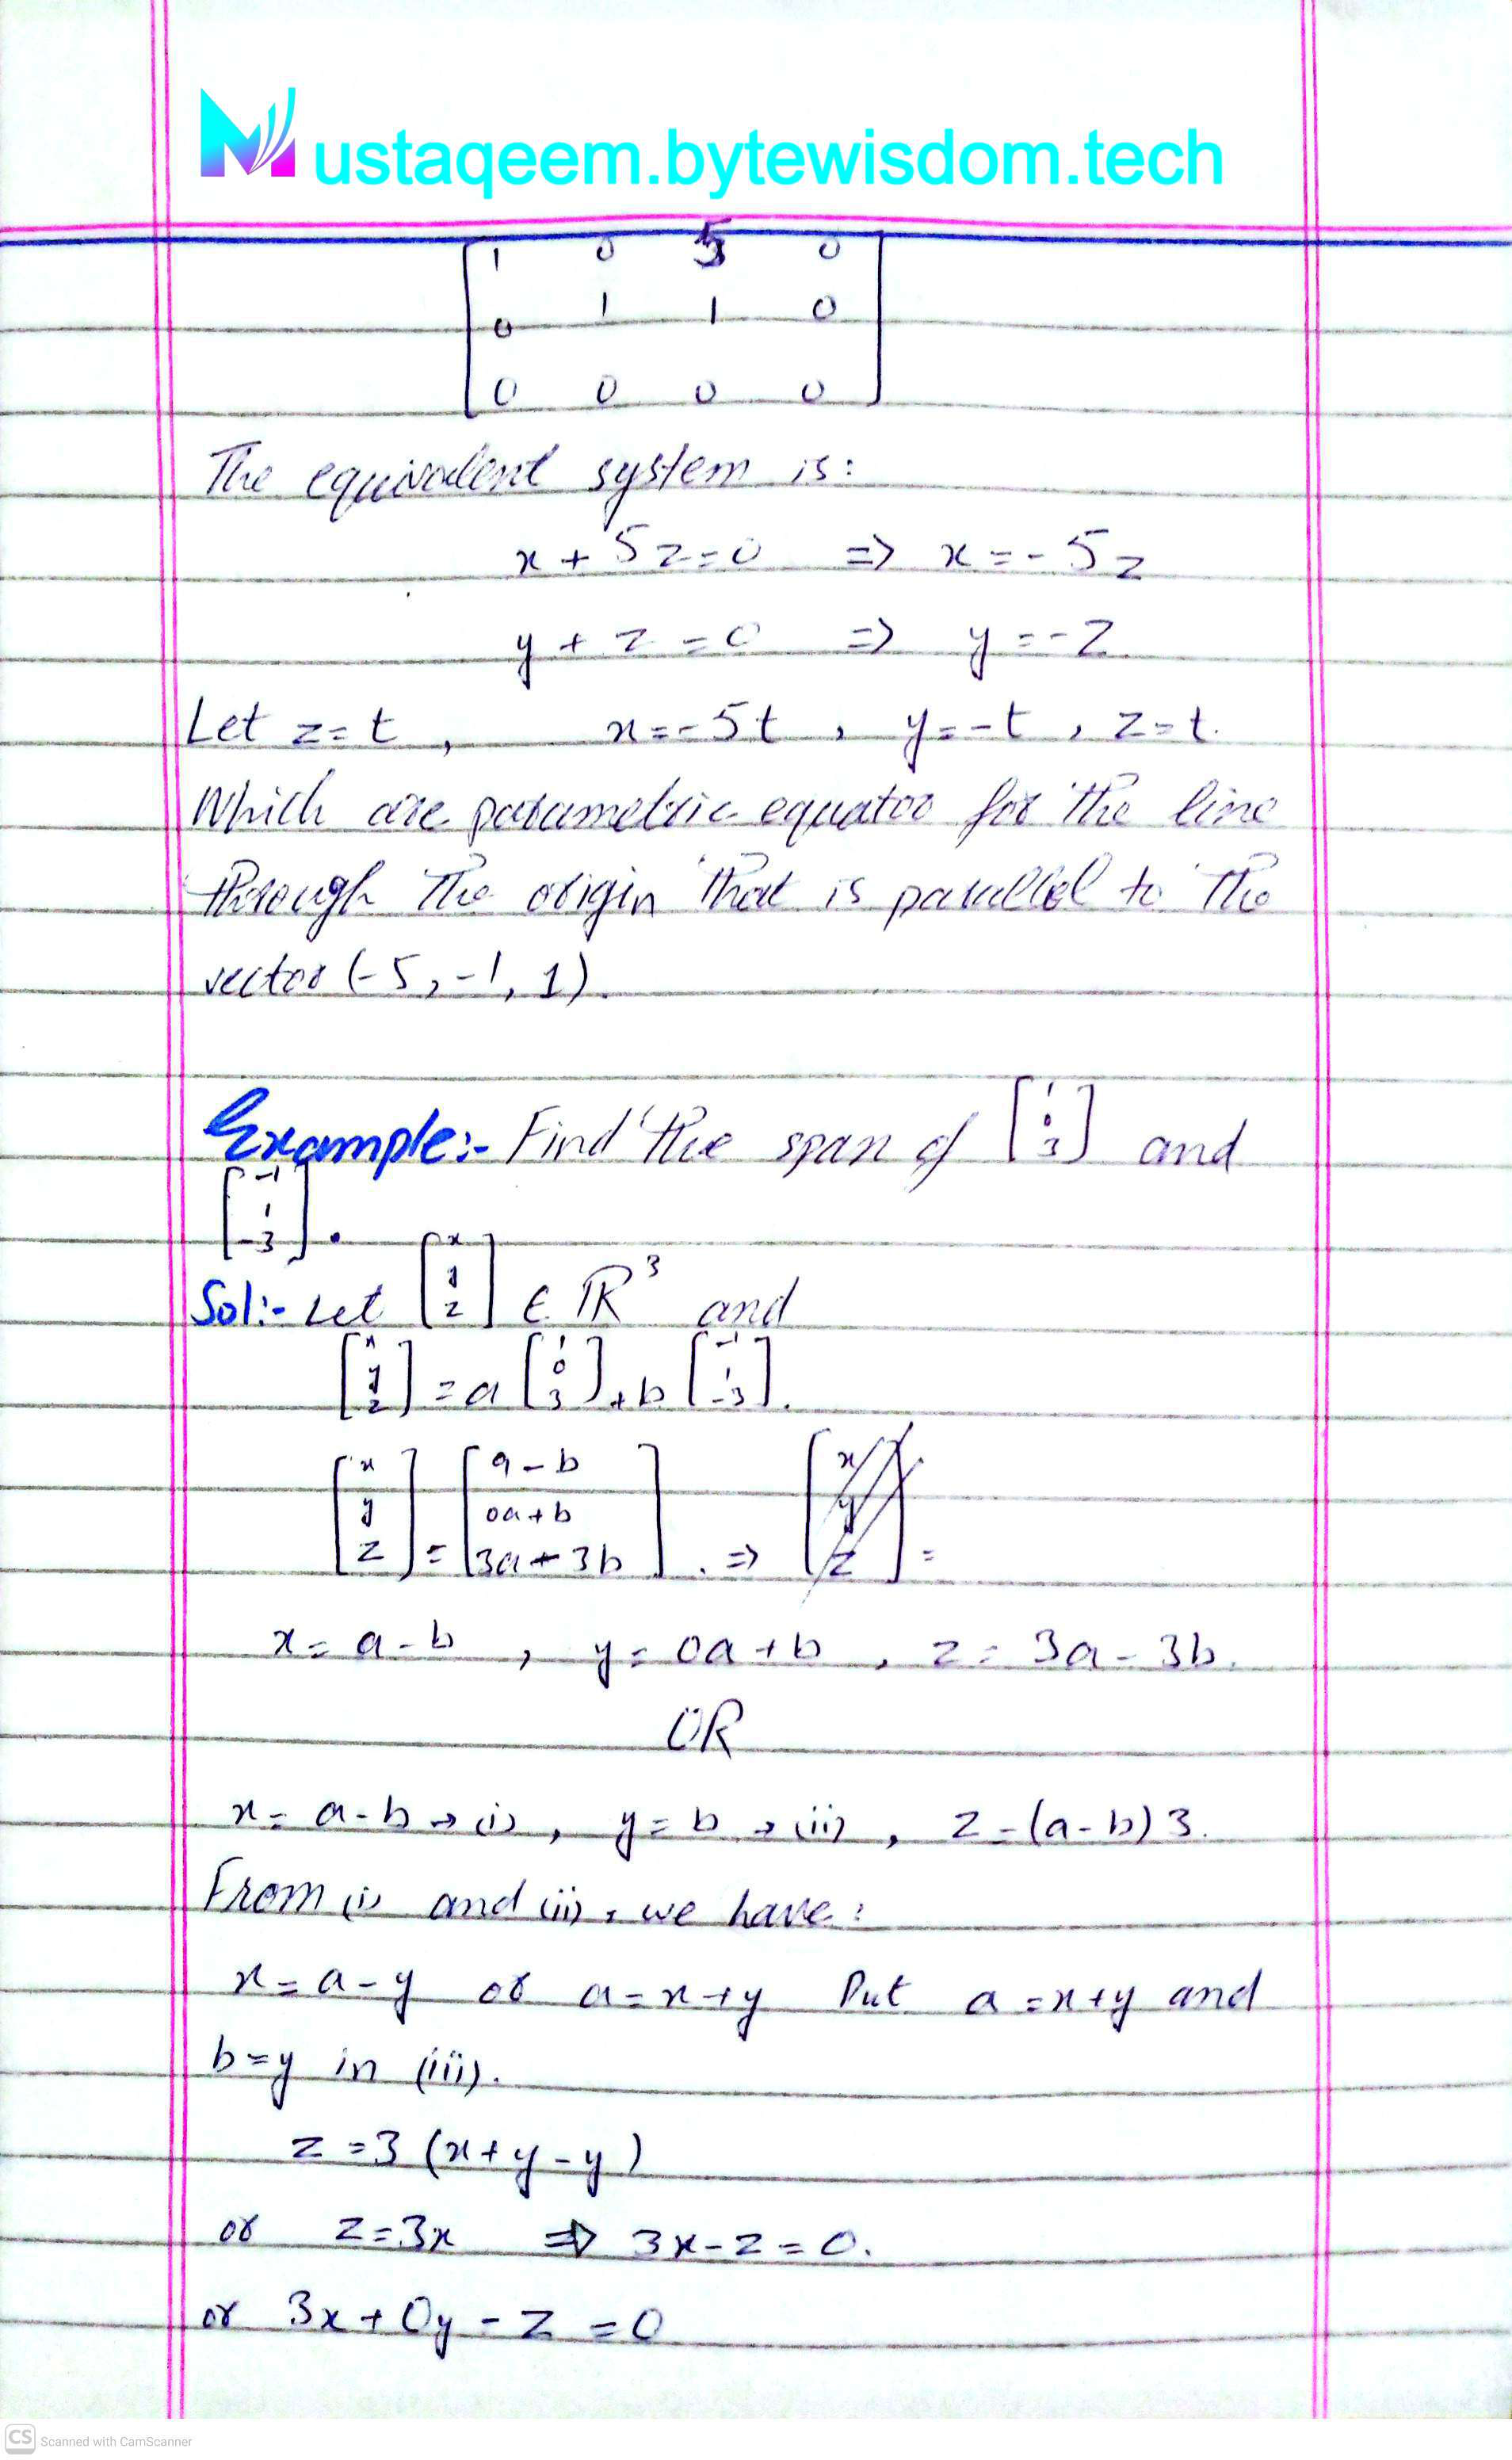 Mustaqeem.bytewisdom.tech
1 0 5 0
0 1 1 0
0 0 0 0
The equivalent system is:
x + 5z = 0 => x = -5z
y + z = 0 => y = -z.
Let z = t , x = -5t , y = -t , z = t.
Which are parametric equatoo for the line
through the origin that is parallel to the
vector (-5, -1, 1).
Example:- Find the span of [1 0 3] and
[-1 1 -3] .
Sol:- Let [x y z] ∈ IR³ and
[x y z] = a [1 0 3] + b [-1 1 -3].
[x y z] = [a - b 0a + b 3a - 3b] . => [x y z] =
x = a - b , y = 0a + b , z = 3a - 3b.
OR
x = a - b → (i) , y = b → (ii) , z = (a - b) 3.
From (i) and (ii), we have:
x = a - y or a = x + y Put a = x + y and
b = y in (iii).
z = 3 (x + y - y)
or z = 3x => 3x - z = 0.
or 3x + 0y - z = 0
CS Scanned with CamScanner